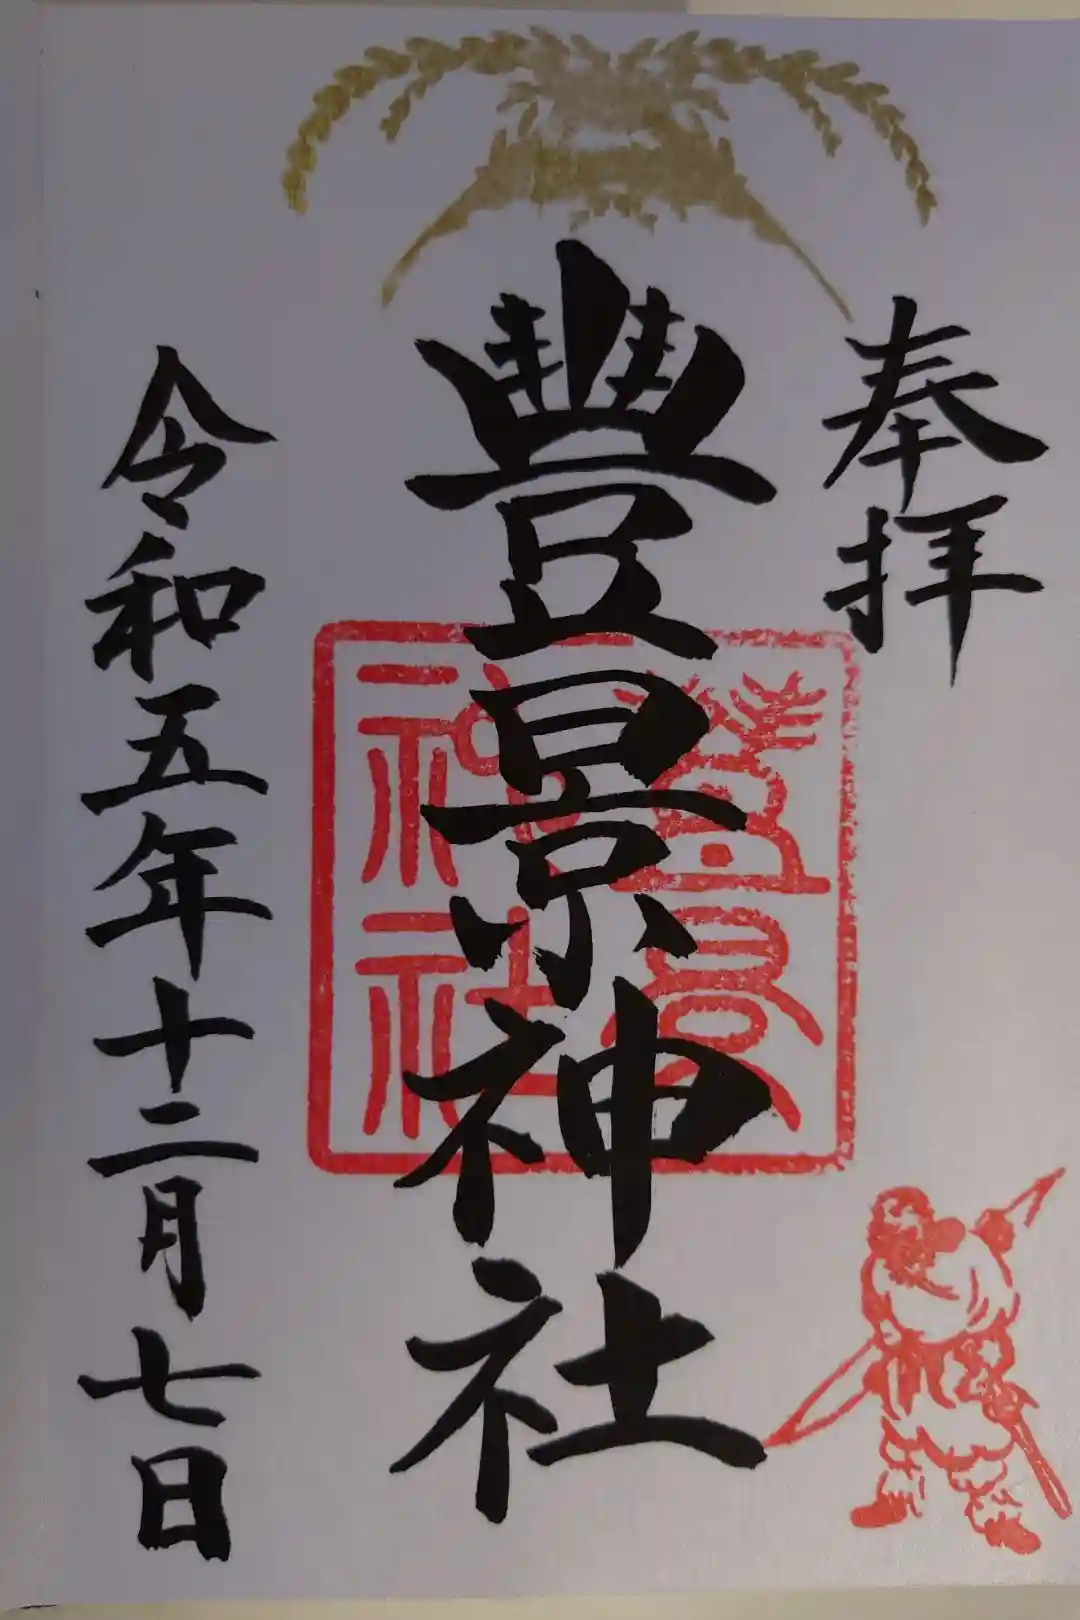 奉拝
豊景神社
豊景
神社
令和五年十二月七日